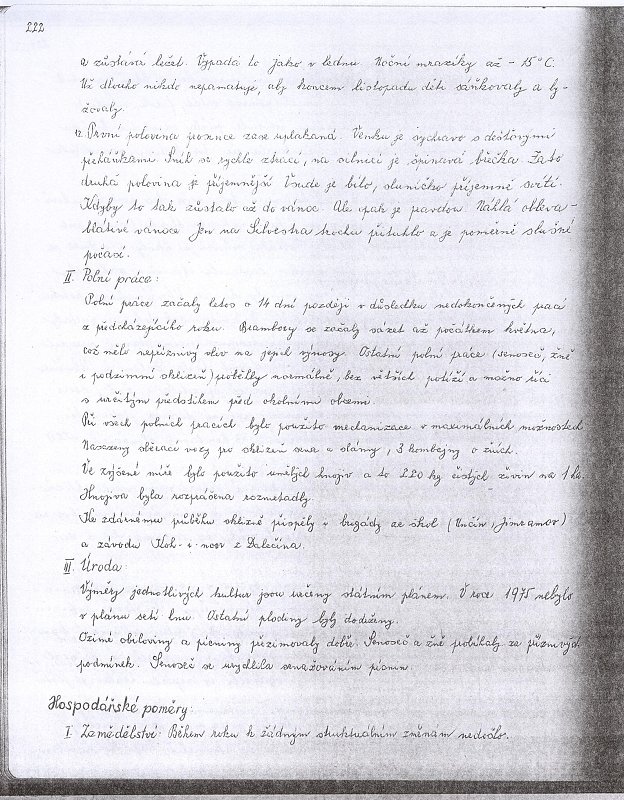 222
a zůstává ležet. Vypadá to jako v lednu. Noční mrazíky až - 15° C.
Už dlouho nikdo nepamatuje, aby koncem listopadu děti sáňkovaly a ly-
žovaly.
12. První polovina prosince zase uplakaná. Venku je sychravo s dešťovými
přeháňkami. Sníh se rychle ztrácí, na silnici je špinavá břečka. Zato
druhá polovina je příjemnější. Všude je bílo, sluníčko příjemně svítí.
Kdyby to tak zůstalo až do vánoc. Ale opak je pravdou. Náhlá obleva -
blátivé vánoce. Jen na Silvestra trochu přituhlo a je poměrně slušné
počasí.
II. Polní práce:
Polní práce začaly letos o 14 dní později v důsledku nedokončených prací
z předcházejícího roku. Brambory se začaly sázet až počátkem května,
což mělo nepříznivý vliv na jejich výnosy. Ostatní polní práce (senoseč, žně
i podzimní sklizeň) proběhly normálně, bez větších potíží a možno říci
s určitým předstihem před okolními obcemi.
Při všech polních pracích bylo použito mechanizace v maximálních možnostech.
Nasazeny sběrací vozy pro sklizeň sena a slámy, 3 kombajny o žních.
Ve zvýšené míře bylo použito umělých hnojiv a to 220 kg čistých živin na 1 ha.
Hnojiva byla rozprášena rozmetadly.
Ke zdárnému průběhu sklizně přispěly i brigády ze škol (Unčín, Jimramov)
a závodu Koh-i-noor z Dalečína.
III. Úroda:
Výměry jednotlivých kultur jsou určeny státním plánem. V roce 1975 nebylo
v plánu setí lnu. Ostatní plodiny byly dodrženy.
Ozimé obiloviny a pícniny přezimovaly dobře. Senoseč a žně probíhaly za příznivých
podmínek. Senoseč se urychlila senážováním pícnin.
Hospodářské poměry:
I. Zemědělství: Během roku k žádným strukturálním změnám nedošlo.